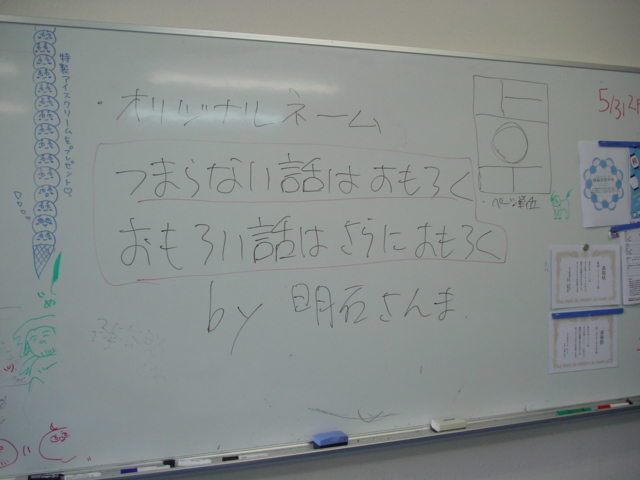 ・オリジナルネーム
つまらない話はおもろく
おもろい話はさらにおもろく
by 明石さんま
・ページ単位
特製アイスクリームをプレゼント